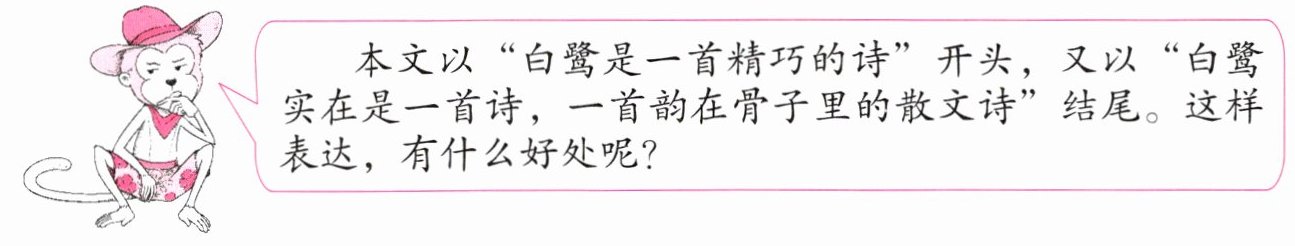 本文以“白鹭是一首精巧的诗”开头，又以“白鹭
实在是一首诗，一首韵在骨子里的散文诗”结尾。这样
表达，有什么好处呢？